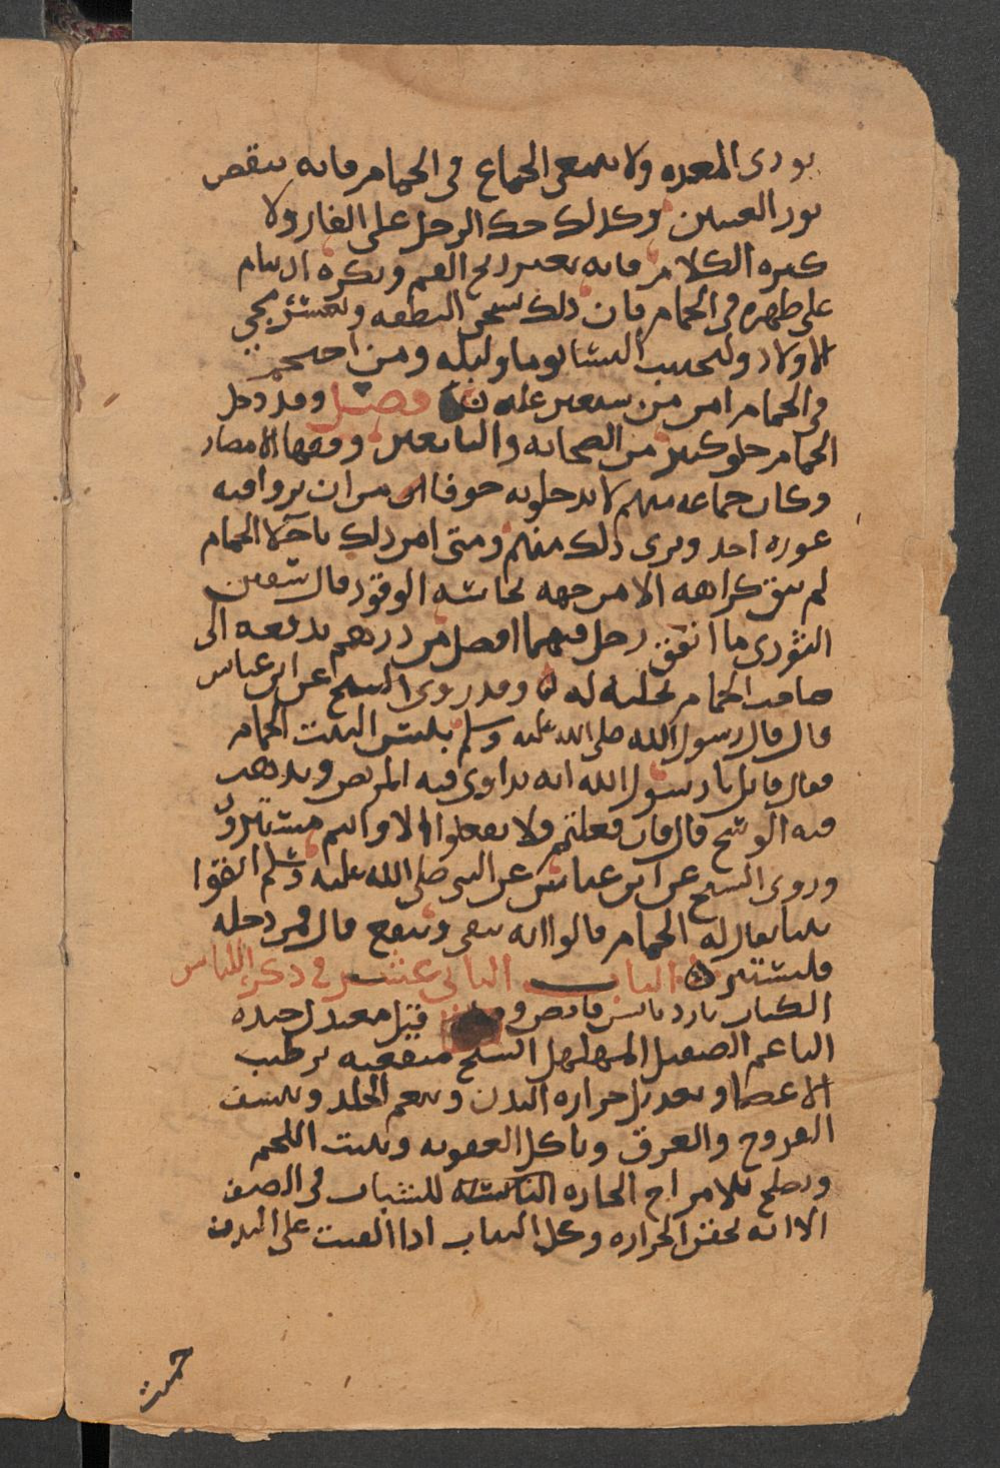 يودي المعده ولا ينبغي الجماع في الحمام فانه ينقص
نور العينين وكذلك حك الرجل على الفار ولا
كثره الكلام فانه يغير ريح الفم ويكره القيام
على ظهره في الحمام فان ذلك يسخن النطفه مجي
الاولاد وليجتنب النسا يوما وليله ومن احتجم
في الحمام امر من يستعير عليه فصل وقد دخل
الحمام خلق كثير من الصحابه والتابعين وفقها الامصار
وكان جماعه منهم لا يدخلونه خوفا من ان يروا فيه
عوره احد ويرى ذلك منهم ومتى امن ذلك باخلا الحمام
لم يبق كراهه الا من جهه نجاسه الوقود قال سفين
الثوري ما انفق رجل درهما افضل من درهم يدفعه الى
صاحب الحمام ليخليه له وقد روى الشيخ عن ابن عباس
قال قال رسول الله صلى الله عليه وسلم بيس البيت الحمام
فقال قايل يا رسول الله انه يداوي فيه المريض ويذهب
فيه الوسخ قال فان فعلتم ولا تفعلوا الا وانتم مستترون
وروى الشيخ عن ابن عباس عن النبي صلى الله عليه وسلم اتقوا
بيتا يقال له الحمام قالوا انه ينقي وينفع قال فمن دخله
فليستتر الباب الثاني عشر في ذكر اللباس
الكتان بارد يابس وقيل معتدل جيده
الناعم الصقيل المهلهل النسج منفعته يرطب
الاعضا ويعدل حراره البدن وينعم الجلد وينشف
القروح والعرق وياكل العفونه وينبت اللحم
ويصلح للامزاج الحاره الناشيه للشباب في الصيف
الا انه يحقن الحراره وكل الثياب اذا القيت على البدن